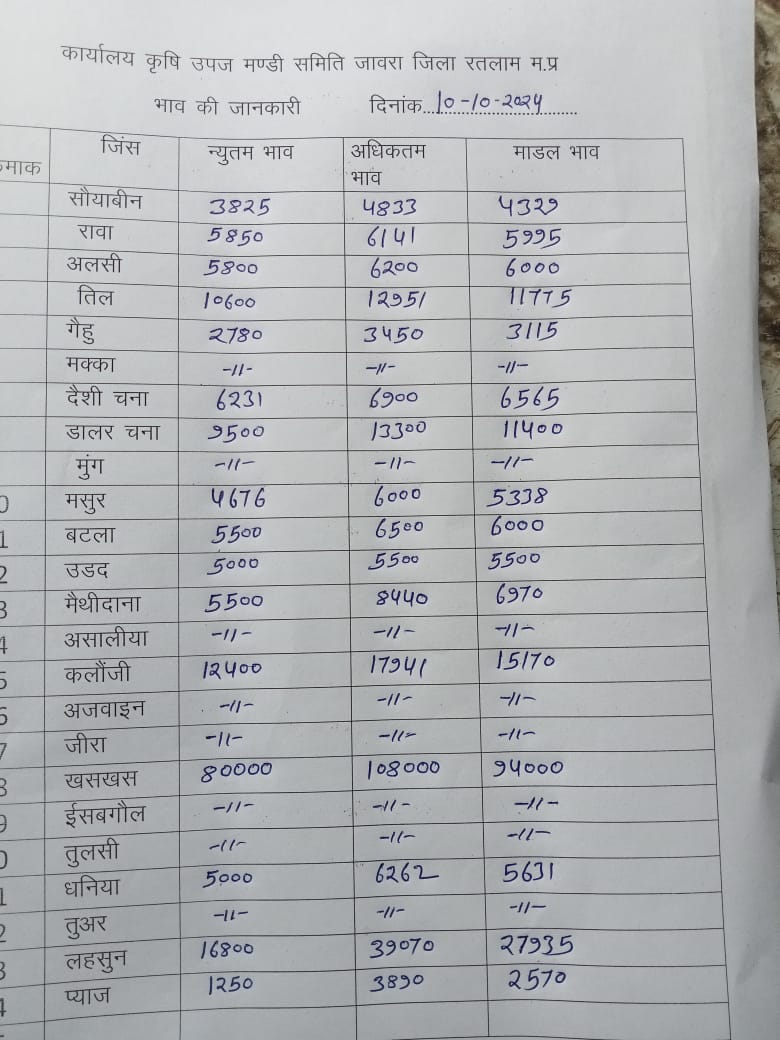 कार्यालय कृषि उपज मण्डी समिति जावरा जिला रतलाम म.प्र
भाव की जानकारी दिनांक...10-10-2024
माक जिंस न्युतम भाव अधिकतम भाव माडल भाव
सौयाबीन 3825 4833 4329
रावा 5850 6141 5995
अलसी 5800 6200 6000
तिल 10600 12951 11775
गैहु 2780 3450 3115
मक्का -11- -11- -11-
दैशी चना 6231 6900 6565
डालर चना 9500 13300 11400
मुंग -11- -11- -11-
0 मसुर 4676 6000 5338
1 बटला 5500 6500 6000
2 उडद 5000 5500 5500
3 मैथीदाना 5500 8440 6970
4 असालीया -11- -11- -11-
5 कलौंजी 12400 17941 15170
6 अजवाइन -11- -11- -11-
7 जीरा -11- -11- -11-
8 खसखस 80000 108000 94000
9 ईसबगौल -11- -11- -11-
0 तुलसी -11- -11- -11-
1 धनिया 5000 6262 5631
2 तुअर -11- -11- -11-
3 लहसुन 16800 39070 27935
4 प्याज 1250 3890 2570